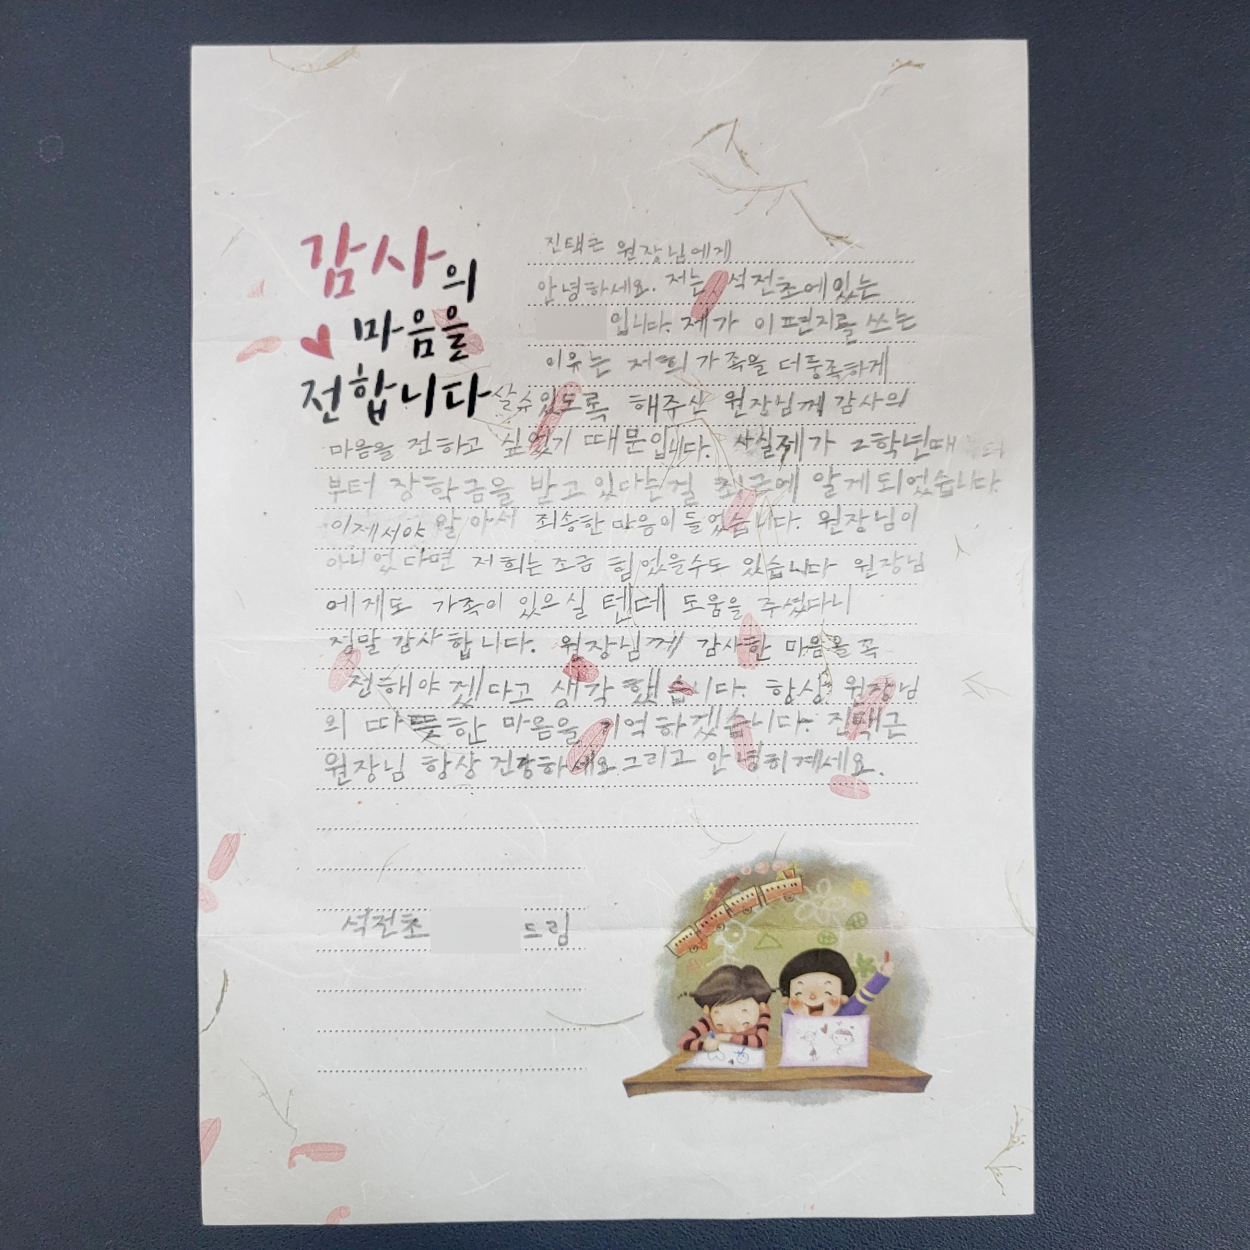 감사의
마음을
전합니다
진택근 원장님에게
안녕하세요. 저는 석전초에있는
입니다. 제가 이편지를 쓰는
이유는 저희 가족을 더풍족하게
살수있도록 해주신 원장님께 감사의
마음을 전하고 싶었기 때문입니다. 사실제가 2학년때
부터 장학금을 받고 있다는걸 최근에 알게되었습니다.
이제서야 알아서 죄송한 마음이 들었습니다. 원장님이
아니었다면 저희는 조금 힘 없을수도 있습니다 원장님
에게도 가족이 있으실 텐데 도움을 주셨다니
정말 감사합니다. 원장님께 감사한 마음을 꼭
전해야 겠다고 생각 했습니다. 항상 원장님
의 따뜻한 마음을 기억하겠습니다. 진택근
원장님 항상 건강하세요 그리고 안녕히계세요.
석전초 드림